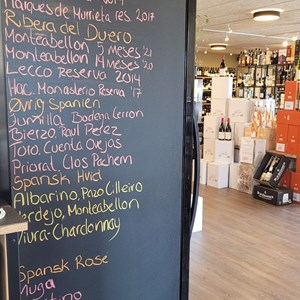 Marques de Murrieta res 2017
Ribera del Duero
Monteabellon 5 meses '21
Monteabellon 14 meses '20
Lecco Reserva 2014
Hac. Monasterio Reserva '17
Øvrig Spanien
Jumilla Bodega Cerron
Bierzo Raul Perez
Toro, Cuenta Ovejas
Priorat Clos Pachem
Spansk Hvid
Albarino, Pazo Cilleiro
Verdejo, Monteabellon
Viura-Chardonnay
Spansk Rose
Muga